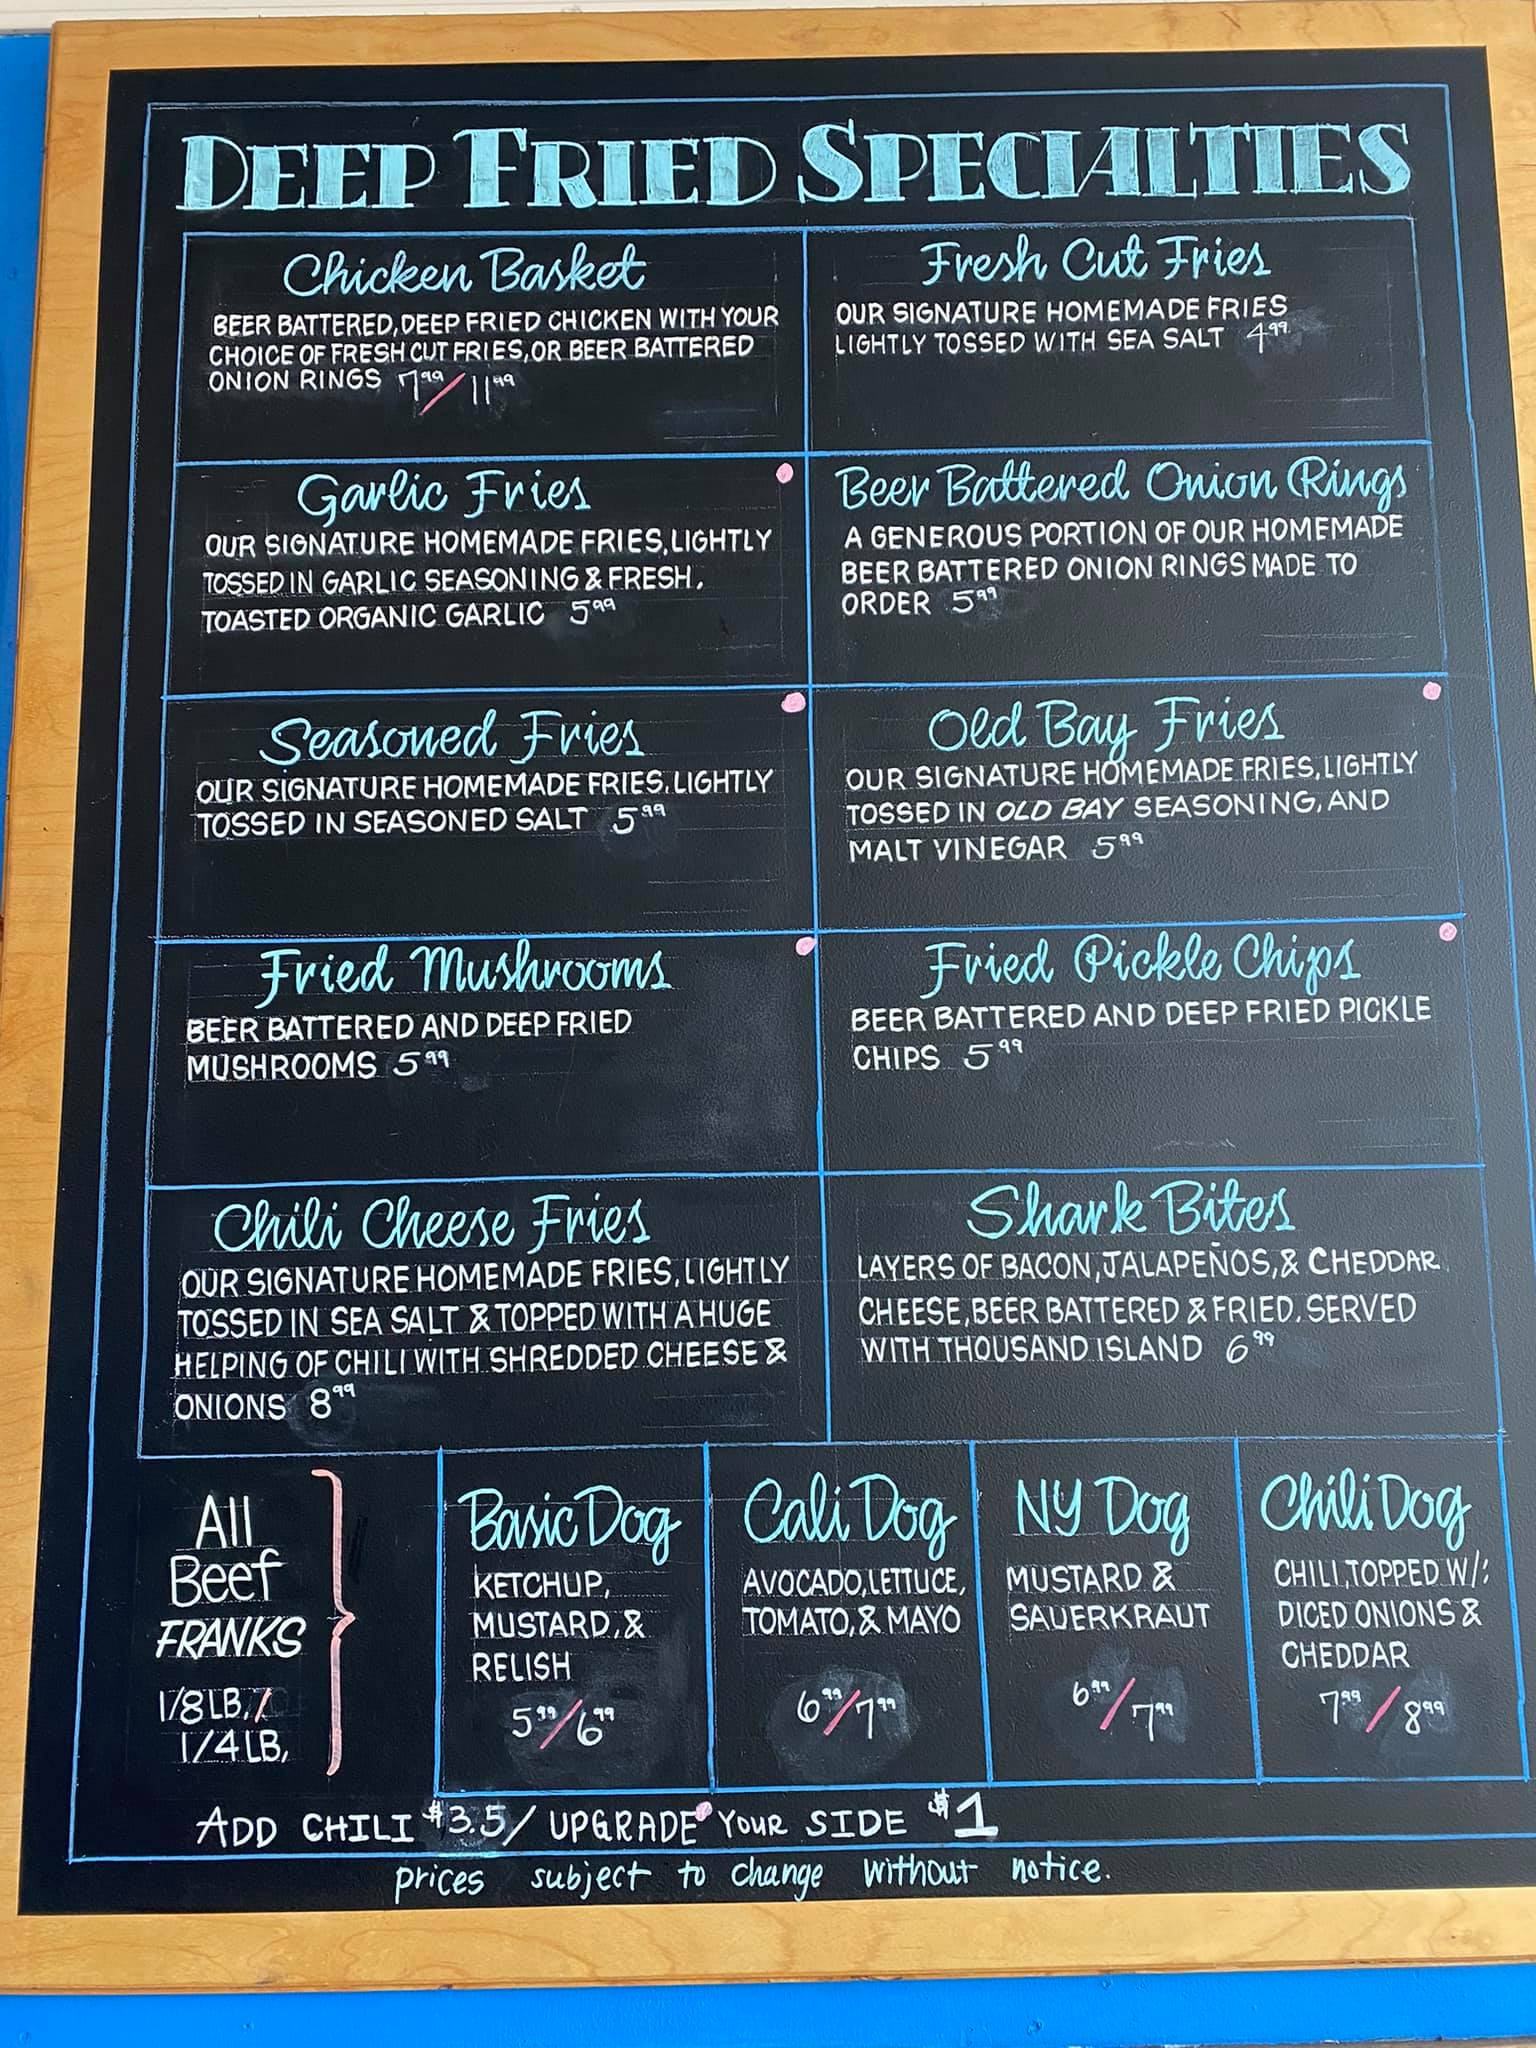 DEEP FRIED SPECIALTIES
Chicken Basket
BEER BATTERED, DEEP FRIED CHICKEN WITH YOUR
CHOICE OF FRESH CUT FRIES, OR BEER BATTERED
ONION RINGS 7.99/11.99
Fresh Cut Fries
OUR SIGNATURE HOMEMADE FRIES
LIGHTLY TOSSED WITH SEA SALT 4.99
Garlic Fries
OUR SIGNATURE HOMEMADE FRIES, LIGHTLY
TOSSED IN GARLIC SEASONING & FRESH,
TOASTED ORGANIC GARLIC 5.99
Beer Battered Onion Rings
A GENEROUS PORTION OF OUR HOMEMADE
BEER BATTERED ONION RINGS MADE TO
ORDER 5.99
Seasoned Fries
OUR SIGNATURE HOMEMADE FRIES, LIGHTLY
TOSSED IN SEASONED SALT 5.99
Old Bay Fries
OUR SIGNATURE HOMEMADE FRIES, LIGHTLY
TOSSED IN OLD BAY SEASONING, AND
MALT VINEGAR 5.99
Fried Mushrooms
BEER BATTERED AND DEEP FRIED
MUSHROOMS 5.99
Fried Pickle Chips
BEER BATTERED AND DEEP FRIED PICKLE
CHIPS 5.99
Chili Cheese Fries
OUR SIGNATURE HOMEMADE FRIES, LIGHTLY
TOSSED IN SEA SALT & TOPPED WITH A HUGE
HELPING OF CHILI WITH SHREDDED CHEESE &
ONIONS 8.99
Shark Bites
LAYERS OF BACON, JALAPEÑOS, & CHEDDAR
CHEESE, BEER BATTERED & FRIED. SERVED
WITH THOUSAND ISLAND 6.99
All
Beef
FRANKS
1/8 LB. /
1/4 LB.
Basic Dog
KETCHUP,
MUSTARD, &
RELISH
5.99/6.99
Cali Dog
AVOCADO, LETTUCE,
TOMATO, & MAYO
6.99/7.99
NY Dog
MUSTARD &
SAUERKRAUT
6.99/7.99
Chili Dog
CHILI, TOPPED W/:
DICED ONIONS &
CHEDDAR
7.99/8.99
ADD CHILI $3.5/ UPGRADE YOUR SIDE $1
prices subject to change without notice.